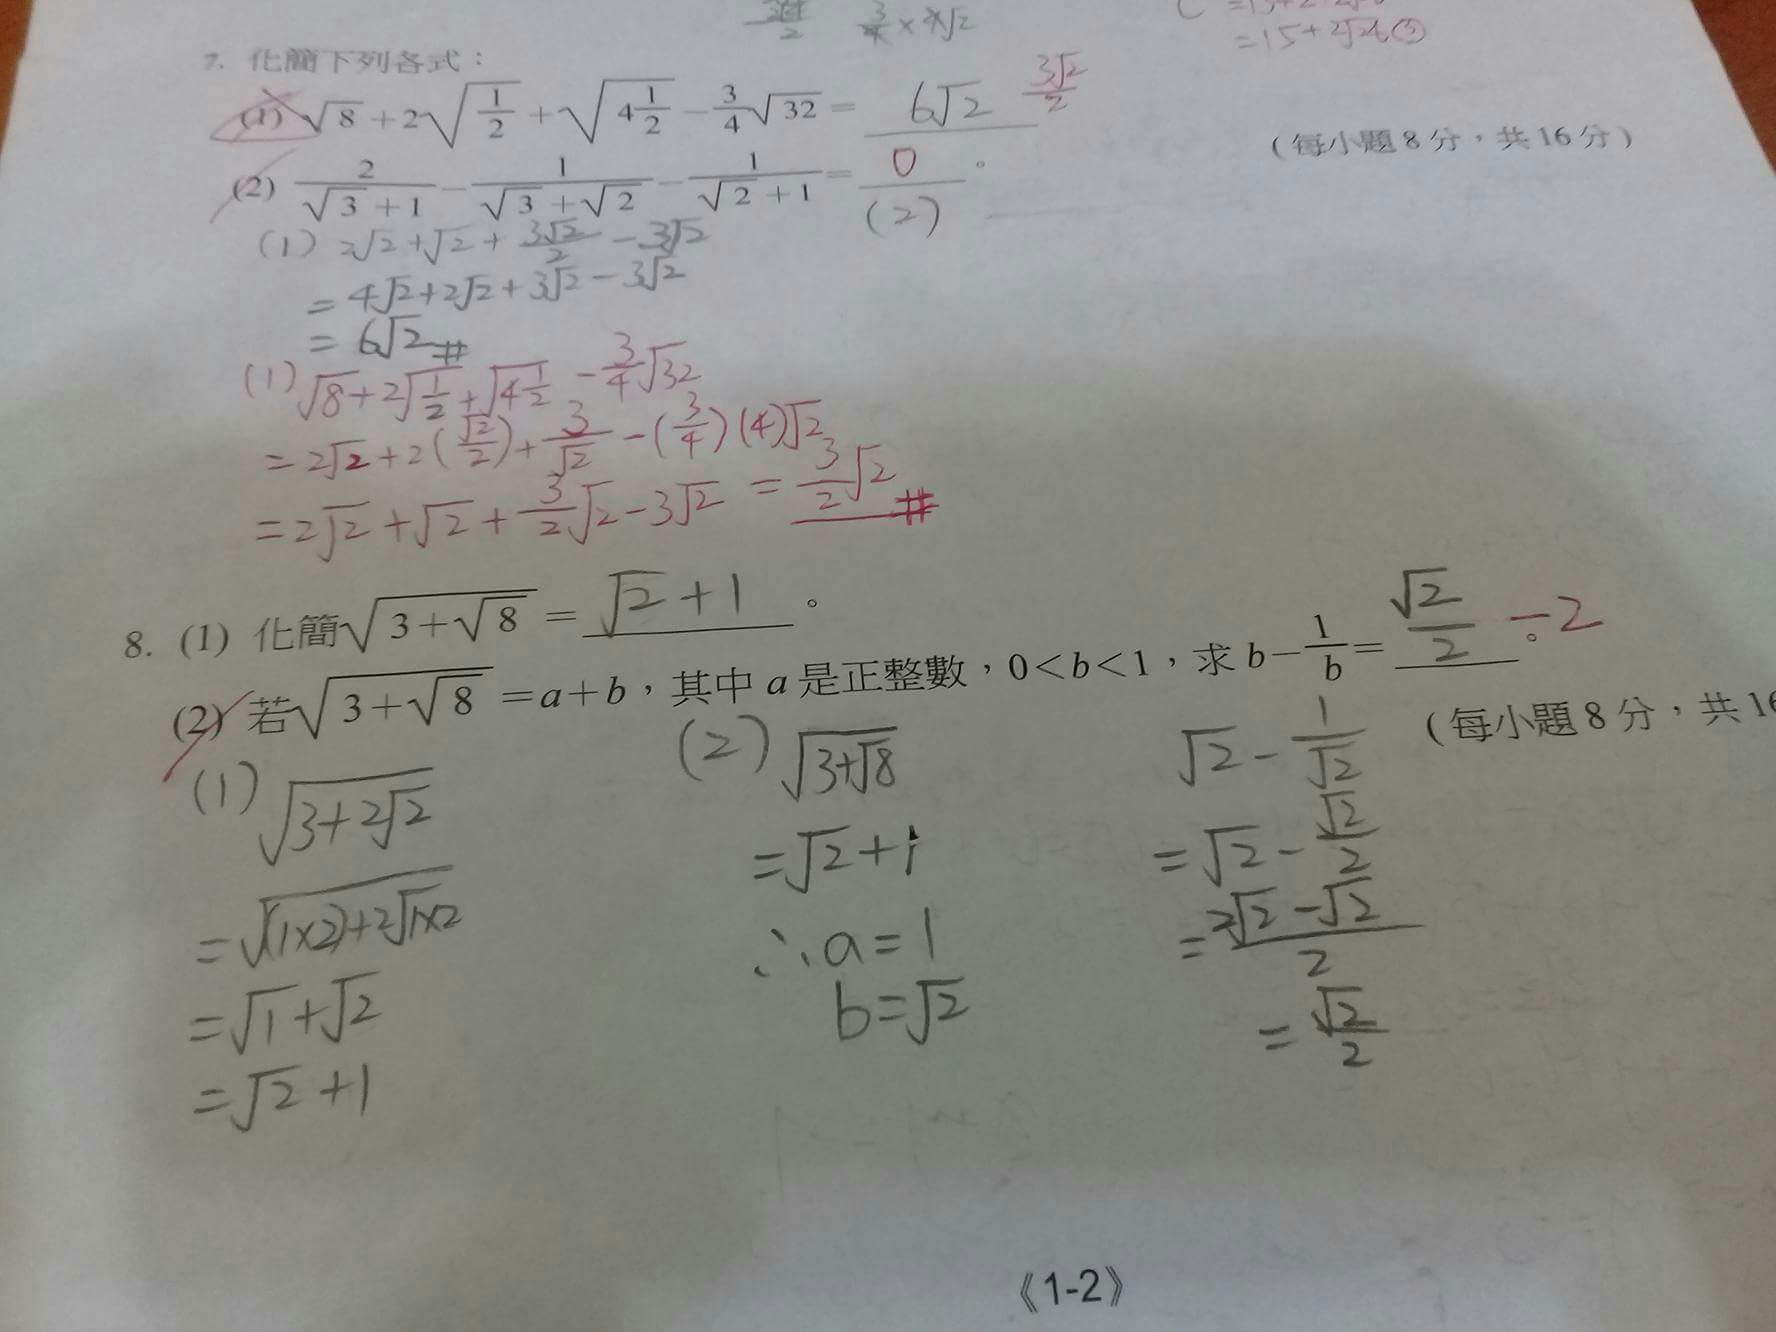 3/4 × 4√2
= 15 + 2√24
7. 化簡下列各式：
(1) √8 + 2√(1/2) + √(4 1/2) − 3/4 √32 = 6√2 3√2/2
(2) 2/(√3 + 1) − 1/(√3 + √2) − 1/(√2 + 1) = 0 。 (每小題 8 分，共 16 分)
(2)
(1) 2√2 + √2 + 3√2/2 − 3√2
= 4√2 + 2√2 + 3√2 − 3√2
= 6√2 #
(1) √8 + 2√(1/2) + √(4 1/2) − 3/4 √32
= 2√2 + 2(√2/2) + 3/√2 − (3/4)(4)√2
= 2√2 + √2 + 3/2 √2 − 3√2 = 3/2 √2 #
8. (1) 化簡√(3+√8) = √2 + 1 。
(2) 若√(3+√8) = a + b，其中 a 是正整數，0 < b < 1，求 b − 1/b = √2/2 。 −2
(每小題 8 分，共 16
(1) √(3+2√2)
= √((1×2)+2√1×2)
= √1 + √2
= √2 + 1
(2) √(3+√8)
= √2 + 1
∴ a = 1
b = √2
√2 − 1/√2
= √2 − √2/2
= (2√2 − √2)/2
= √2/2
《1-2》